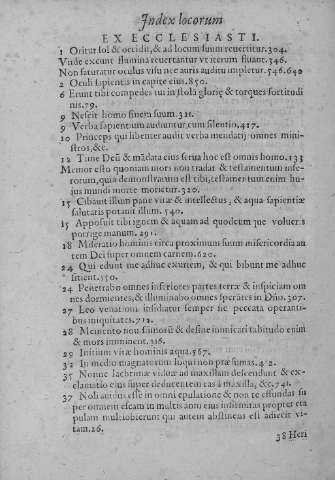 Index locorum
EX ECCLESIASTI.
1 Oritur sol & occidit, & ad locum suum reuertitur. 304.
Vnde exeunt flumina reuertantur vt iterum fluant. 346.
Non saturatur oculus visu nec auris auditu impletur. 546. 640
2 Oculi sapientis in capite eius. 850.
6 Erunt tibi compedes tui in stola glorię & torques fortitudi
nis. 79.
9 Nescit homo finem suum. 321.
9 Verba sapientium audiuntur cum silentio. 417.
10 Princeps qui libenter audit verba mendatij omnes mini-
stros, &c.
12 Time Deũ & mãdata eius serua hoc est omnis homo. 133
Memor esto quoniam mors non tradat & testamentum infe-
rorum, quia demonstratum est tibi, testamentum enim hu-
ius mundi morte morietur. 320.
15 Cibauit illum pane vitæ & intellectus, & aqua sapientiæ
salutaris potauit illum. 540.
15 Apposuit tibi ignem & aquam ad quodcum que volueris
porrige manum. 291.
18 Miseratio hominis circa proximum suum misericordia au
tem Dei super omnem carnem. 620.
24 Qui edunt me adhuc exuriem, & qui bibunt me adhuc
sitient. 550.
24 Penetrabo omnes inferiores partes terræ & inspiciam om
nes dormientes, & illuminabo omnes sperātes in Dño. 307.
27 Leo venationi insidiatur semper sic peccata operanti-
bus iniquitates. 712.
28 Memento nouissimorũ & desine inimicari tabitudo enim
& mors imminent. 316.
29 Initium vitæ hominis aqua. 567.
32 In medio magnatorum loqui non præsumas. 412.
35 Nonne lachrimæ viduæ ad maxillam descendunt & ex-
clamatio eius super deducentem eas à maxilla, &c. 741.
37 Noli auidus esse in omni epulatione & non te effundas su
per omnem escam in multis enim eius infirmitas propter cra
pulam multi obierunt qui autem abstinens est adiicit vi-
tam. 26.
38 Heri